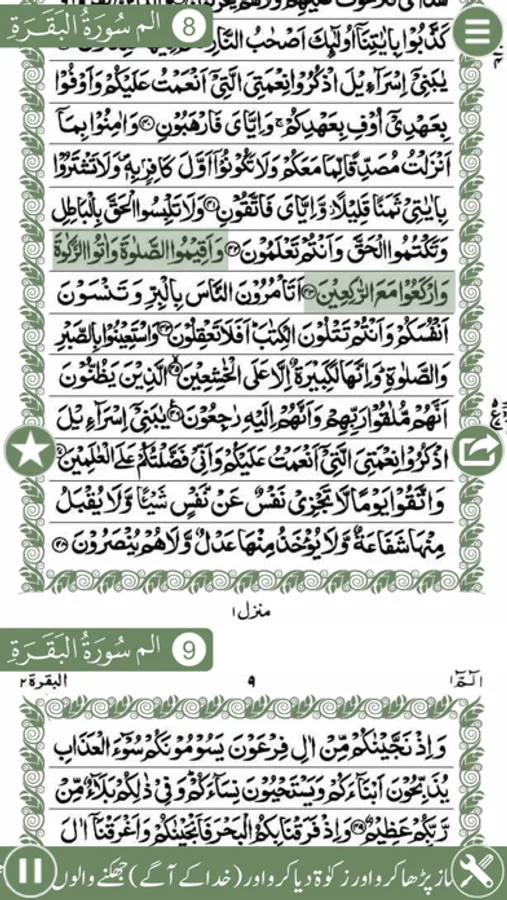 الم سُورَةُ الْبَقَرَةِ 8
كَذَّبُوْا بِاٰيٰتِنَاۤ اُولٰٓئِكَ اَصْحٰبُ النَّارِ
يٰبَنِيْۤ اِسْرَآءِيْلَ اذْكُرُوْا نِعْمَتِيَ الَّتِيْۤ اَنْعَمْتُ عَلَيْكُمْ وَاَوْفُوْا
بِعَهْدِيْۤ اُوْفِ بِعَهْدِكُمْ ۚ وَاِيَّايَ فَارْهَبُوْنِ ﴿۴۰﴾ وَاٰمِنُوْا بِمَاۤ
اَنْزَلْتُ مُصَدِّقًا لِّمَا مَعَكُمْ وَلَا تَكُوْنُوْۤا اَوَّلَ كَافِرٍۭ بِهٖ ۪ وَلَا تَشْتَرُوْا
بِاٰيٰتِيْ ثَمَنًا قَلِيْلًا ؗ وَّاِيَّايَ فَاتَّقُوْنِ ﴿۴۱﴾ وَلَا تَلْبِسُوا الْحَقَّ بِالْبَاطِلِ
وَتَكْتُمُوا الْحَقَّ وَاَنْتُمْ تَعْلَمُوْنَ ﴿۴۲﴾ وَاَقِيْمُوا الصَّلٰوةَ وَاٰتُوا الزَّكٰوةَ
وَارْكَعُوْا مَعَ الرّٰكِعِيْنَ ﴿۴۳﴾ اَتَاْمُرُوْنَ النَّاسَ بِالْبِرِّ وَتَنْسَوْنَ
اَنْفُسَكُمْ وَاَنْتُمْ تَتْلُوْنَ الْكِتٰبَ ؕ اَفَلَا تَعْقِلُوْنَ ﴿۴۴﴾ وَاسْتَعِيْنُوْا بِالصَّبْرِ
وَالصَّلٰوةِ ؕ وَاِنَّهَا لَكَبِيْرَةٌ اِلَّا عَلَى الْخٰشِعِيْنَ ﴿۴۵﴾ الَّذِيْنَ يَظُنُّوْنَ
اَنَّهُمْ مُّلٰقُوْا رَبِّهِمْ وَاَنَّهُمْ اِلَيْهِ رٰجِعُوْنَ ﴿۴۶﴾ يٰبَنِيْۤ اِسْرَآءِيْلَ
اذْكُرُوْا نِعْمَتِيَ الَّتِيْۤ اَنْعَمْتُ عَلَيْكُمْ وَاَنِّيْ فَضَّلْتُكُمْ عَلَى الْعٰلَمِيْنَ ﴿۴۷﴾
وَاتَّقُوْا يَوْمًا لَّا تَجْزِيْ نَفْسٌ عَنْ نَّفْسٍ شَيْئًا وَّلَا يُقْبَلُ
مِنْهَا شَفَاعَةٌ وَّلَا يُؤْخَذُ مِنْهَا عَدْلٌ وَّلَا هُمْ يُنْصَرُوْنَ ﴿۴۸﴾
منزل ۱
الم سُورَةُ الْبَقَرَةِ 9
الٓمّٓ ۱ ۹ البقرة ۲
وَاِذْ نَجَّيْنٰكُمْ مِّنْ اٰلِ فِرْعَوْنَ يَسُوْمُوْنَكُمْ سُوْٓءَ الْعَذَابِ
يُذَبِّحُوْنَ اَبْنَآءَكُمْ وَيَسْتَحْيُوْنَ نِسَآءَكُمْ ؕ وَفِيْ ذٰلِكُمْ بَلَآءٌ مِّنْ
رَّبِّكُمْ عَظِيْمٌ ﴿۴۹﴾ وَاِذْ فَرَقْنَا بِكُمُ الْبَحْرَ فَاَنْجَيْنٰكُمْ وَاَغْرَقْنَاۤ اٰلَ
پڑھا کرو اور زکوٰۃ دیا کرو اور (خدا کے آگے) جھکنے والوں